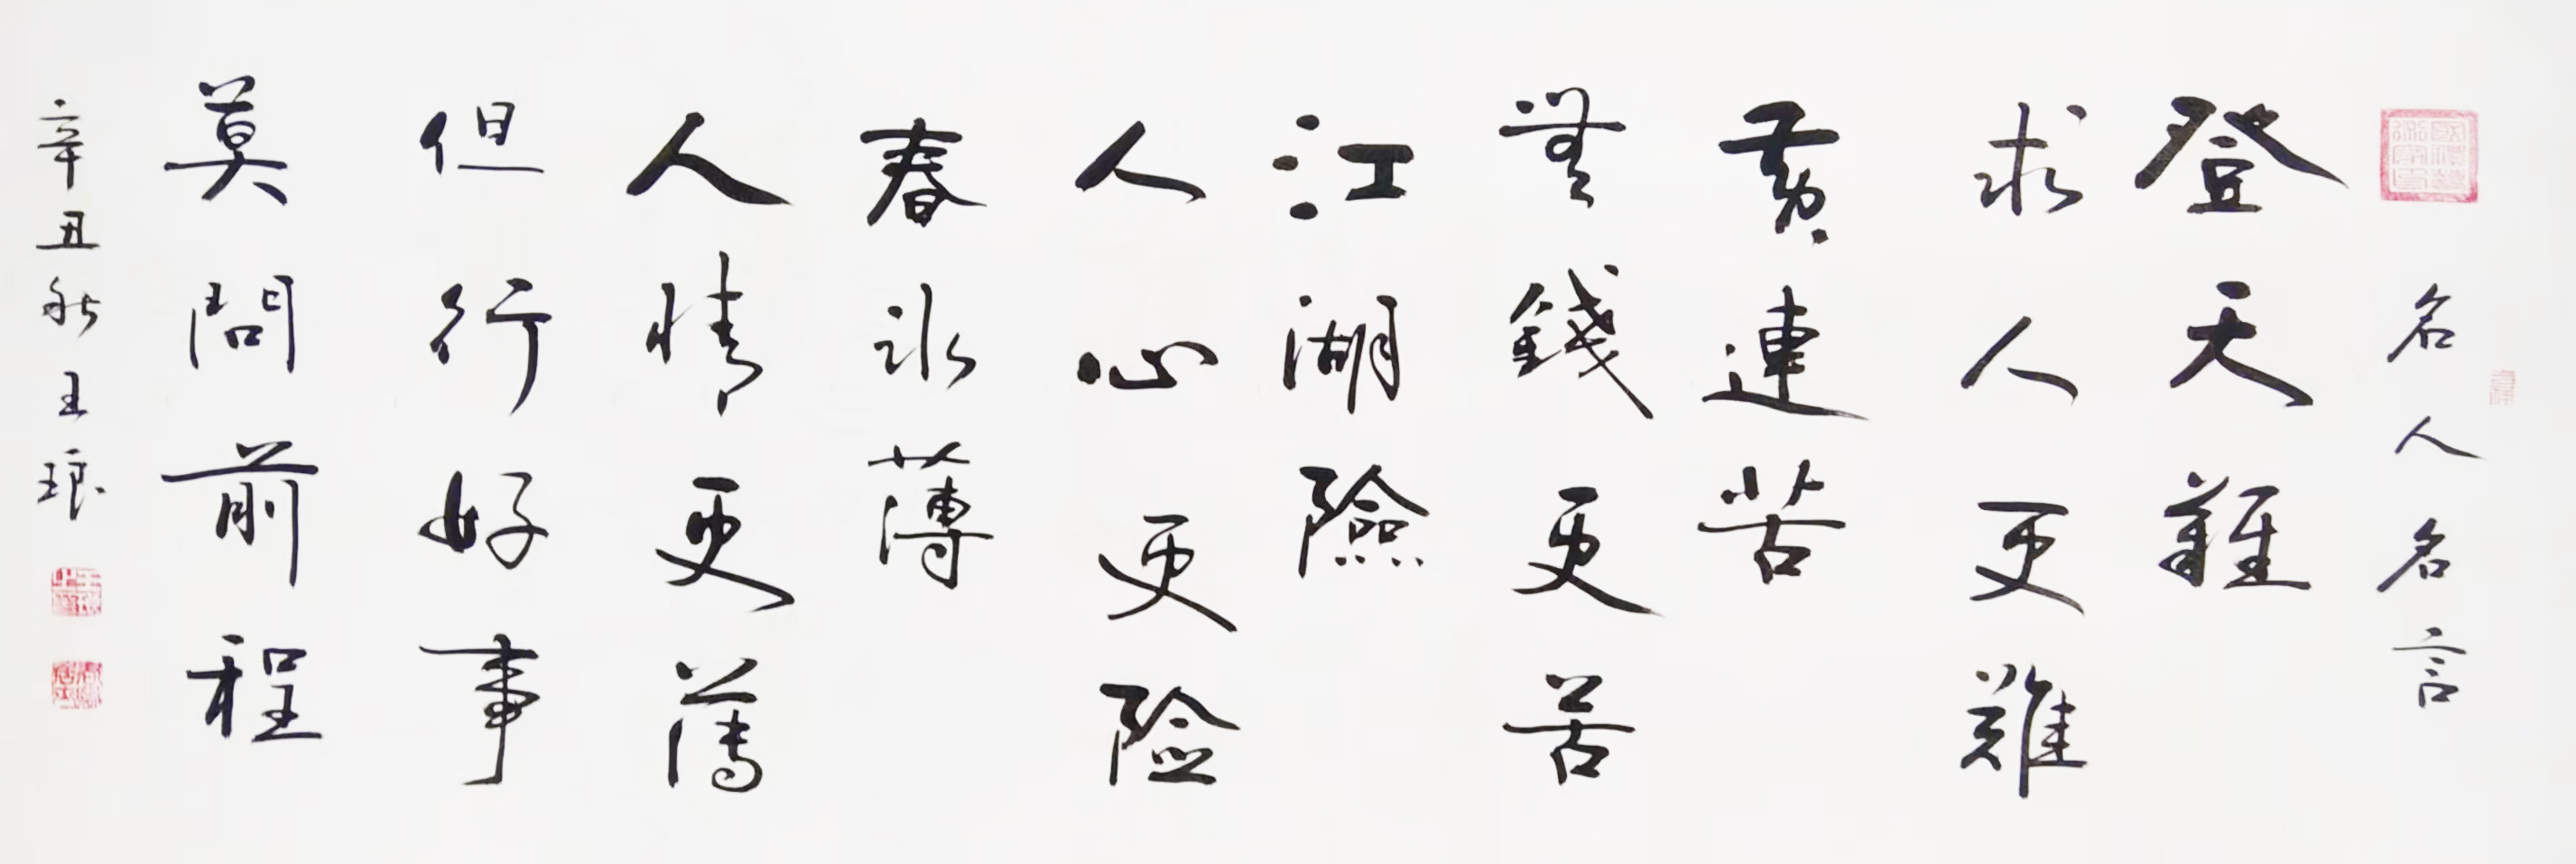 名人名言
登天難
求人更難
黃連苦
無錢更苦
江湖險
人心更險
春冰薄
人情更薄
但行好事
莫問前程
辛丑秋王琅